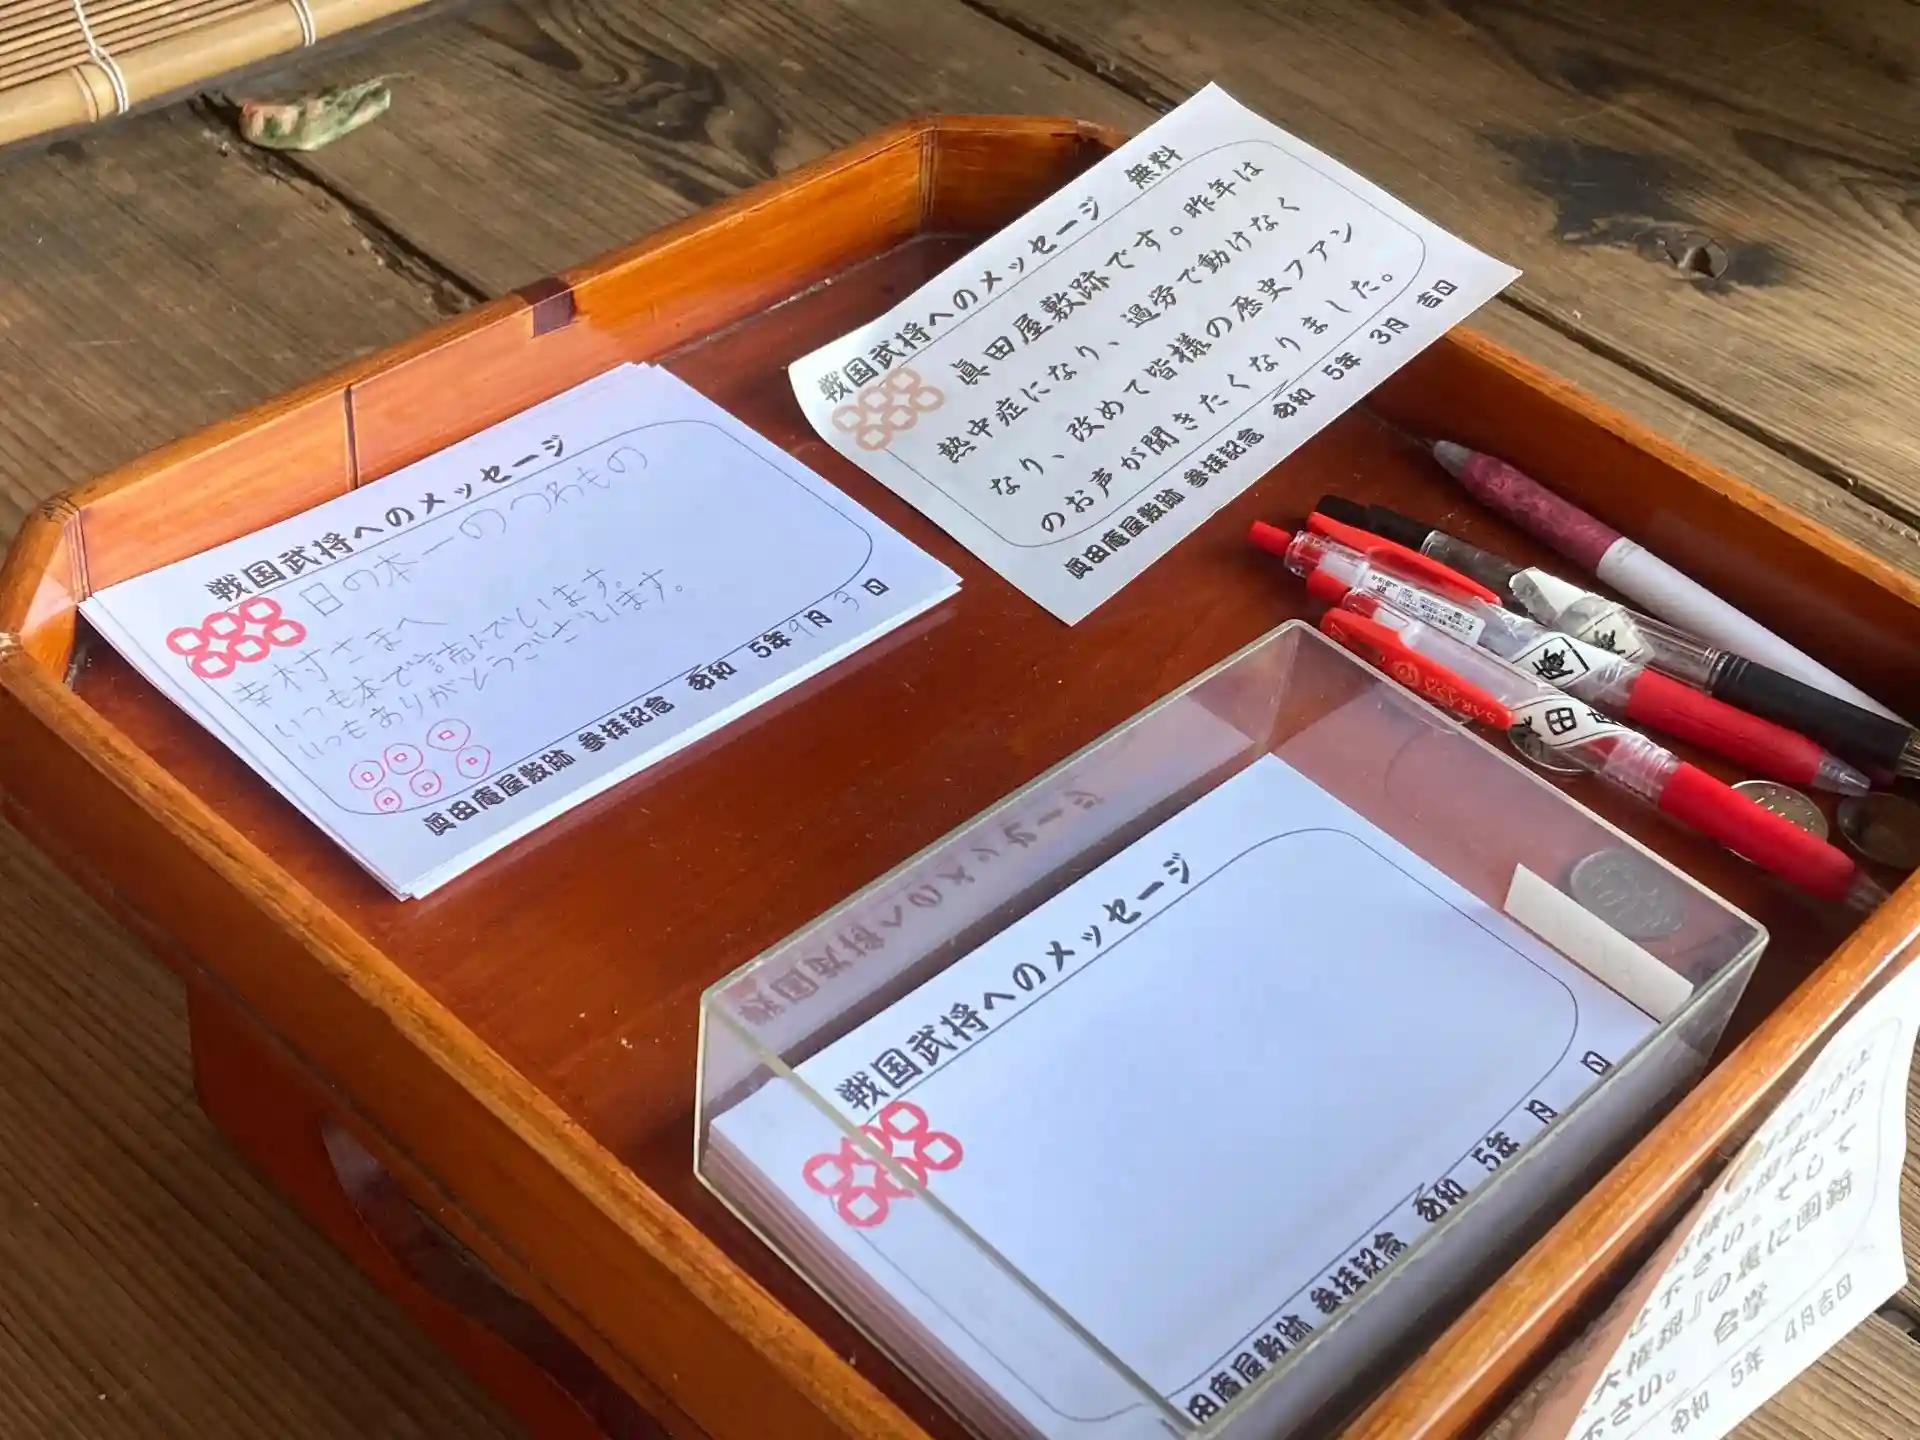 戦国武将へのメッセージ 無料
眞田屋敷跡です。昨年は
熱中症になり、過労で動けなく
なり、改めて皆様の歴史ファン
のお声が聞きたくなりました。
眞田庵屋敷跡 参拝記念 令和 5年 3月 吉日
戦国武将へのメッセージ
日の本一のつわもの
幸村さまへ
いつも本で読んでいます。
いつもありがとうございます。
眞田庵屋敷跡 参拝記念 令和 5年 9月 3日
戦国武将へのメッセージ
田庵屋敷跡 参拝記念 令和 5年 月 日
眞田庵
SARASA
大権現』の裏に画鋲
下さい。 合掌
令和 5年 4月吉日